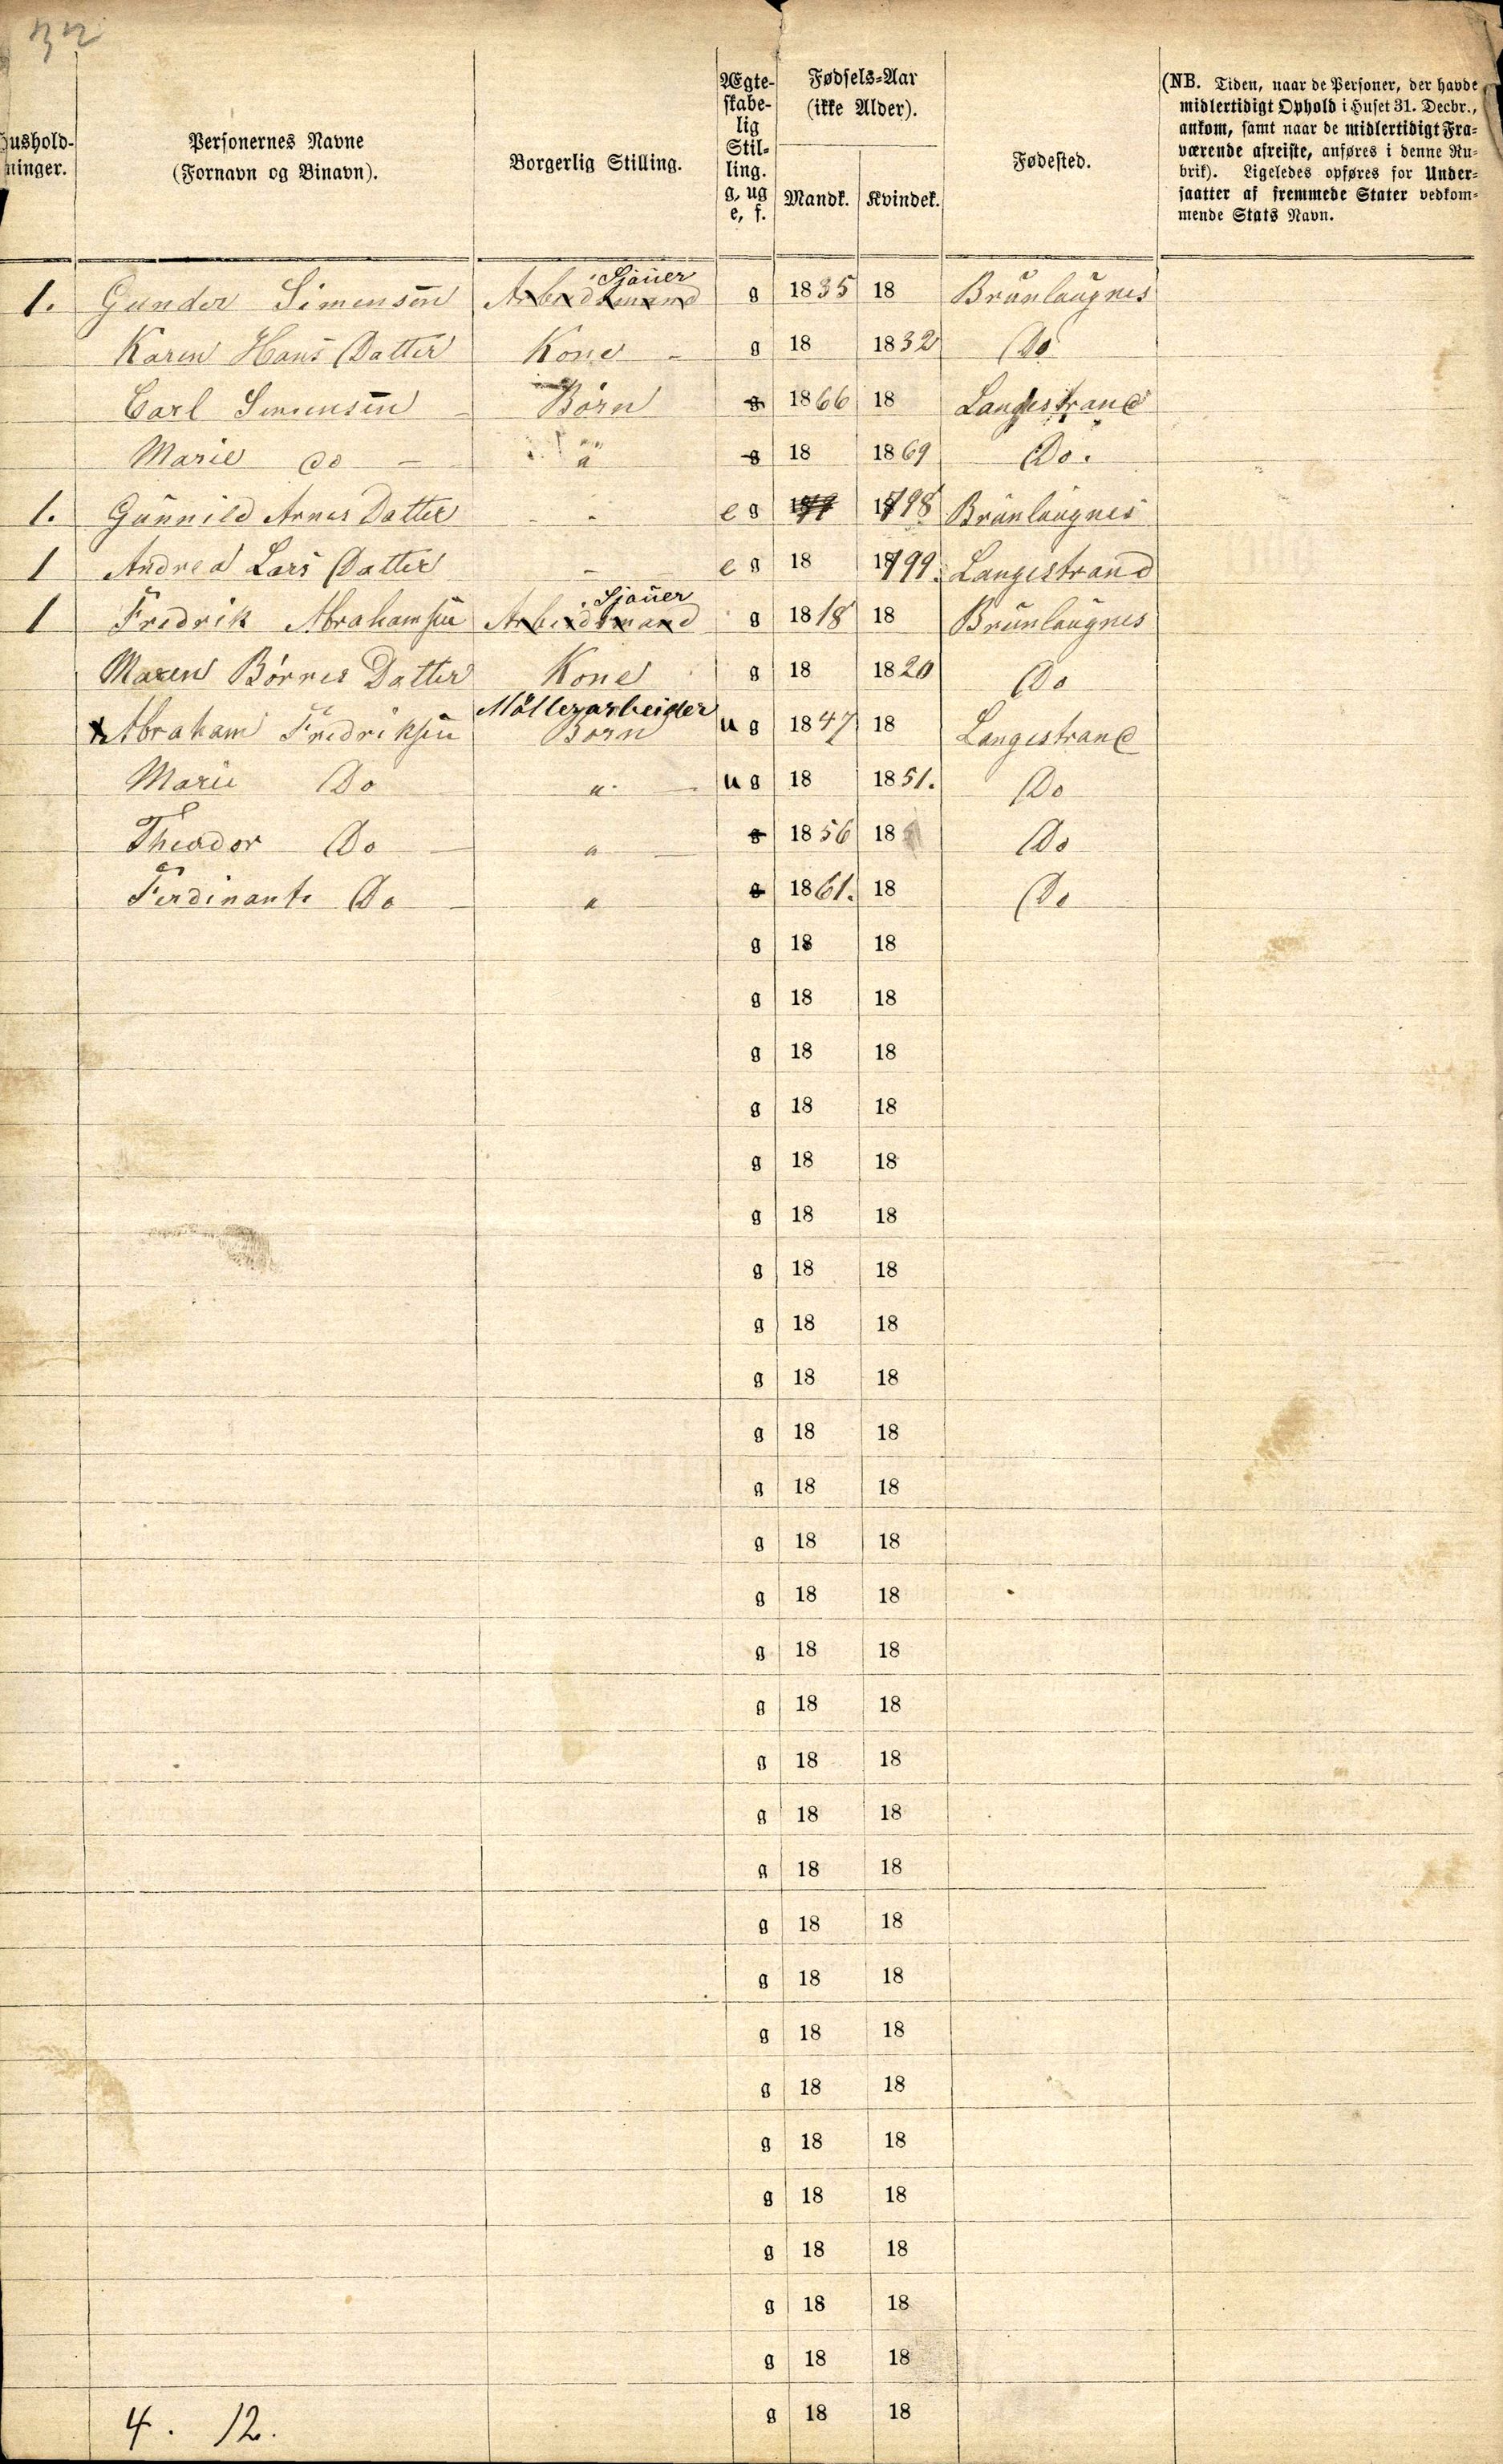 32
Hushold-
ninger.
Personernes Navne
(Fornavn og Binavn).
Borgerlig Stilling.
Ægte-
skabe-
lig
Stil-
ling.
g, ug
e, f.
Fødsels-Aar
(ikke Alder).
Mandk. Kvindek.
Fødested.
(NB. Tiden, naar de Personer, der havde
midlertidigt Ophold i Huset 31. Decbr.,
ankom, samt naar de midlertidigt Fra-
værende afreiste, anføres i denne Ru-
brik). Ligeledes opføres for Under-
saatter af fremmede Stater vedkom-
mende Stats Navn.
Sjauer
1. Gunder Simensen Arbeidsmand g 1835 18 Brunlaugnes
Karen Hans Datter Kone - g 18 1832 Do
Carl Simensen - Börn g 1866 18 Langestrand
Marie do - " g 18 1869 Do.
1. Gunnild Arnes Datter - - e g 1798 Brunlaugnes
1 Andrea Lars Datter - e g 18 1799. Langestrand
Sjauer
1 Fredrik Abrahamsen Arbeidsmand g 1818 18 Brunlaugnes
Maren Börres Datter Kone g 18 1820 Do
Möllerarbeider
x Abraham Fredriksen Börn u g 1847 18 Langestrand
Marie Do " - u g 18 1851. Do
Theodor Do - " - g 1856 18 Do
Ferdinant Do - " g 1861. 18 Do
g 18 18
g 18 18
g 18 18
g 18 18
g 18 18
g 18 18
g 18 18
g 18 18
g 18 18
g 18 18
g 18 18
g 18 18
g 18 18
g 18 18
g 18 18
g 18 18
g 18 18
g 18 18
g 18 18
g 18 18
g 18 18
g 18 18
g 18 18
g 18 18
g 18 18
g 18 18
g 18 18
4. 12. g 18 18